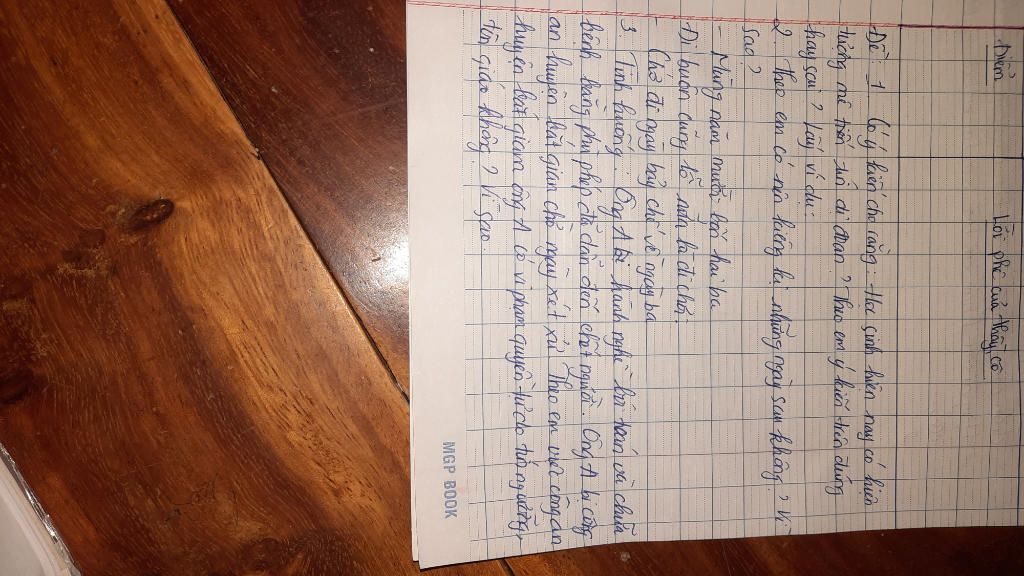 Điểm
Lời phê của thầy cô
Đề: 1 Có ý kiến cho rằng: Học sinh hiện nay có hiện
tượng mê tín dị đoan? Theo em ý kiến trên đúng
hay sai? Lấy ví dụ:
2. Theo em có nên kiêng kị những ngày sau không? Vì
sao?
- Mùng năm mười bốn hai ba
Đi buôn cũng lỗ nữa là đi chơi.
Chớ đi ngày bảy chớ về ngày ba
3. Tình huống: Ông A hành nghề bói toán và chữa
bệnh bằng phù phép đã dẫn đến chết người. Ông A bị công
an huyện bắt giam chờ ngày xét xử. Theo em việc công an
huyện bắt giam ông A có vi phạm quyền tự do tín ngưỡng,
tôn giáo không? Vì sao.
MGP BOOK